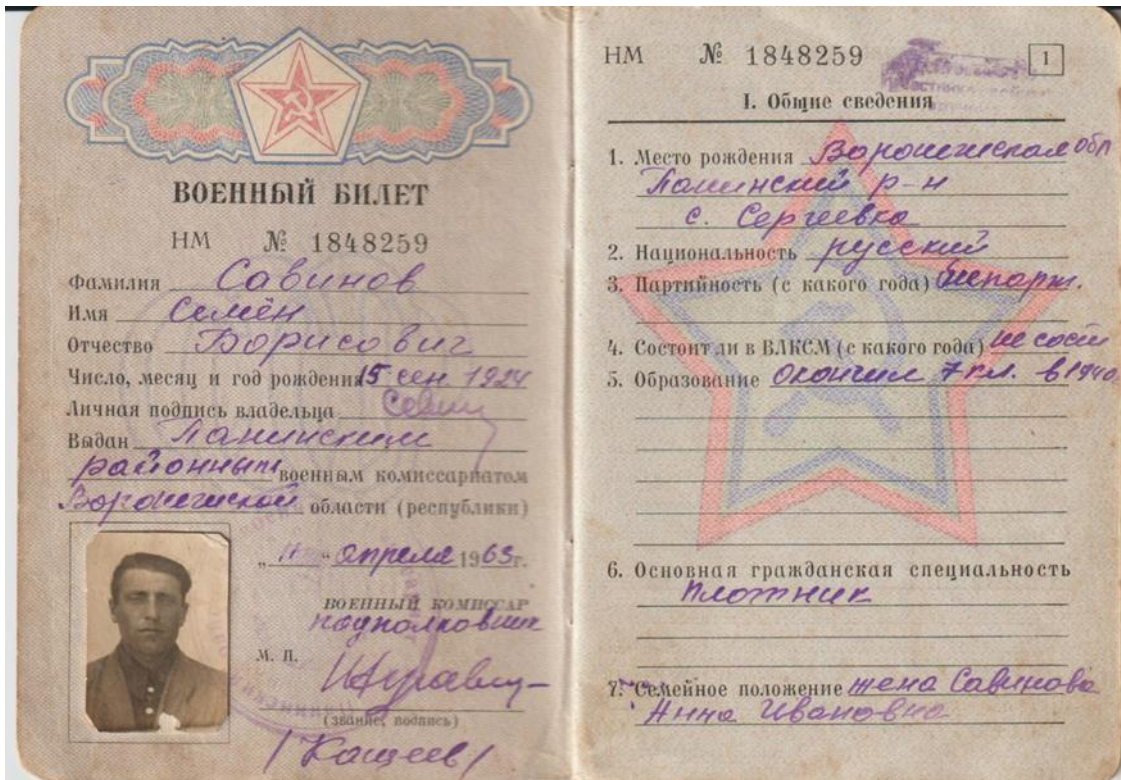 ВОЕННЫЙ БИЛЕТ
НМ № 1848259
Фамилия Савинов
Имя Семён
Отчество Борисович
Число, месяц и год рождения 15 сен. 1924
Личная подпись владельца Савин
Выдан Панинским
районным военным комиссариатом
Воронежской области (республики)
" " апреля 1963г.
ВОЕННЫЙ КОМИССАР
подполковник
М. П.
(звание, подпись)
/Кащеев/
НМ № 1848259
1
I. Общие сведения
1. Место рождения Воронежская обл
Панинский р-н
с. Сергеевка
2. Национальность русский
3. Партийность (с какого года) беспарт.
4. Состоит ли в ВЛКСМ (с какого года) не сост
5. Образование окончил 7 кл. в 1940
6. Основная гражданская специальность
плотник
7. Семейное положение жена Савинова
Анна Ивановна